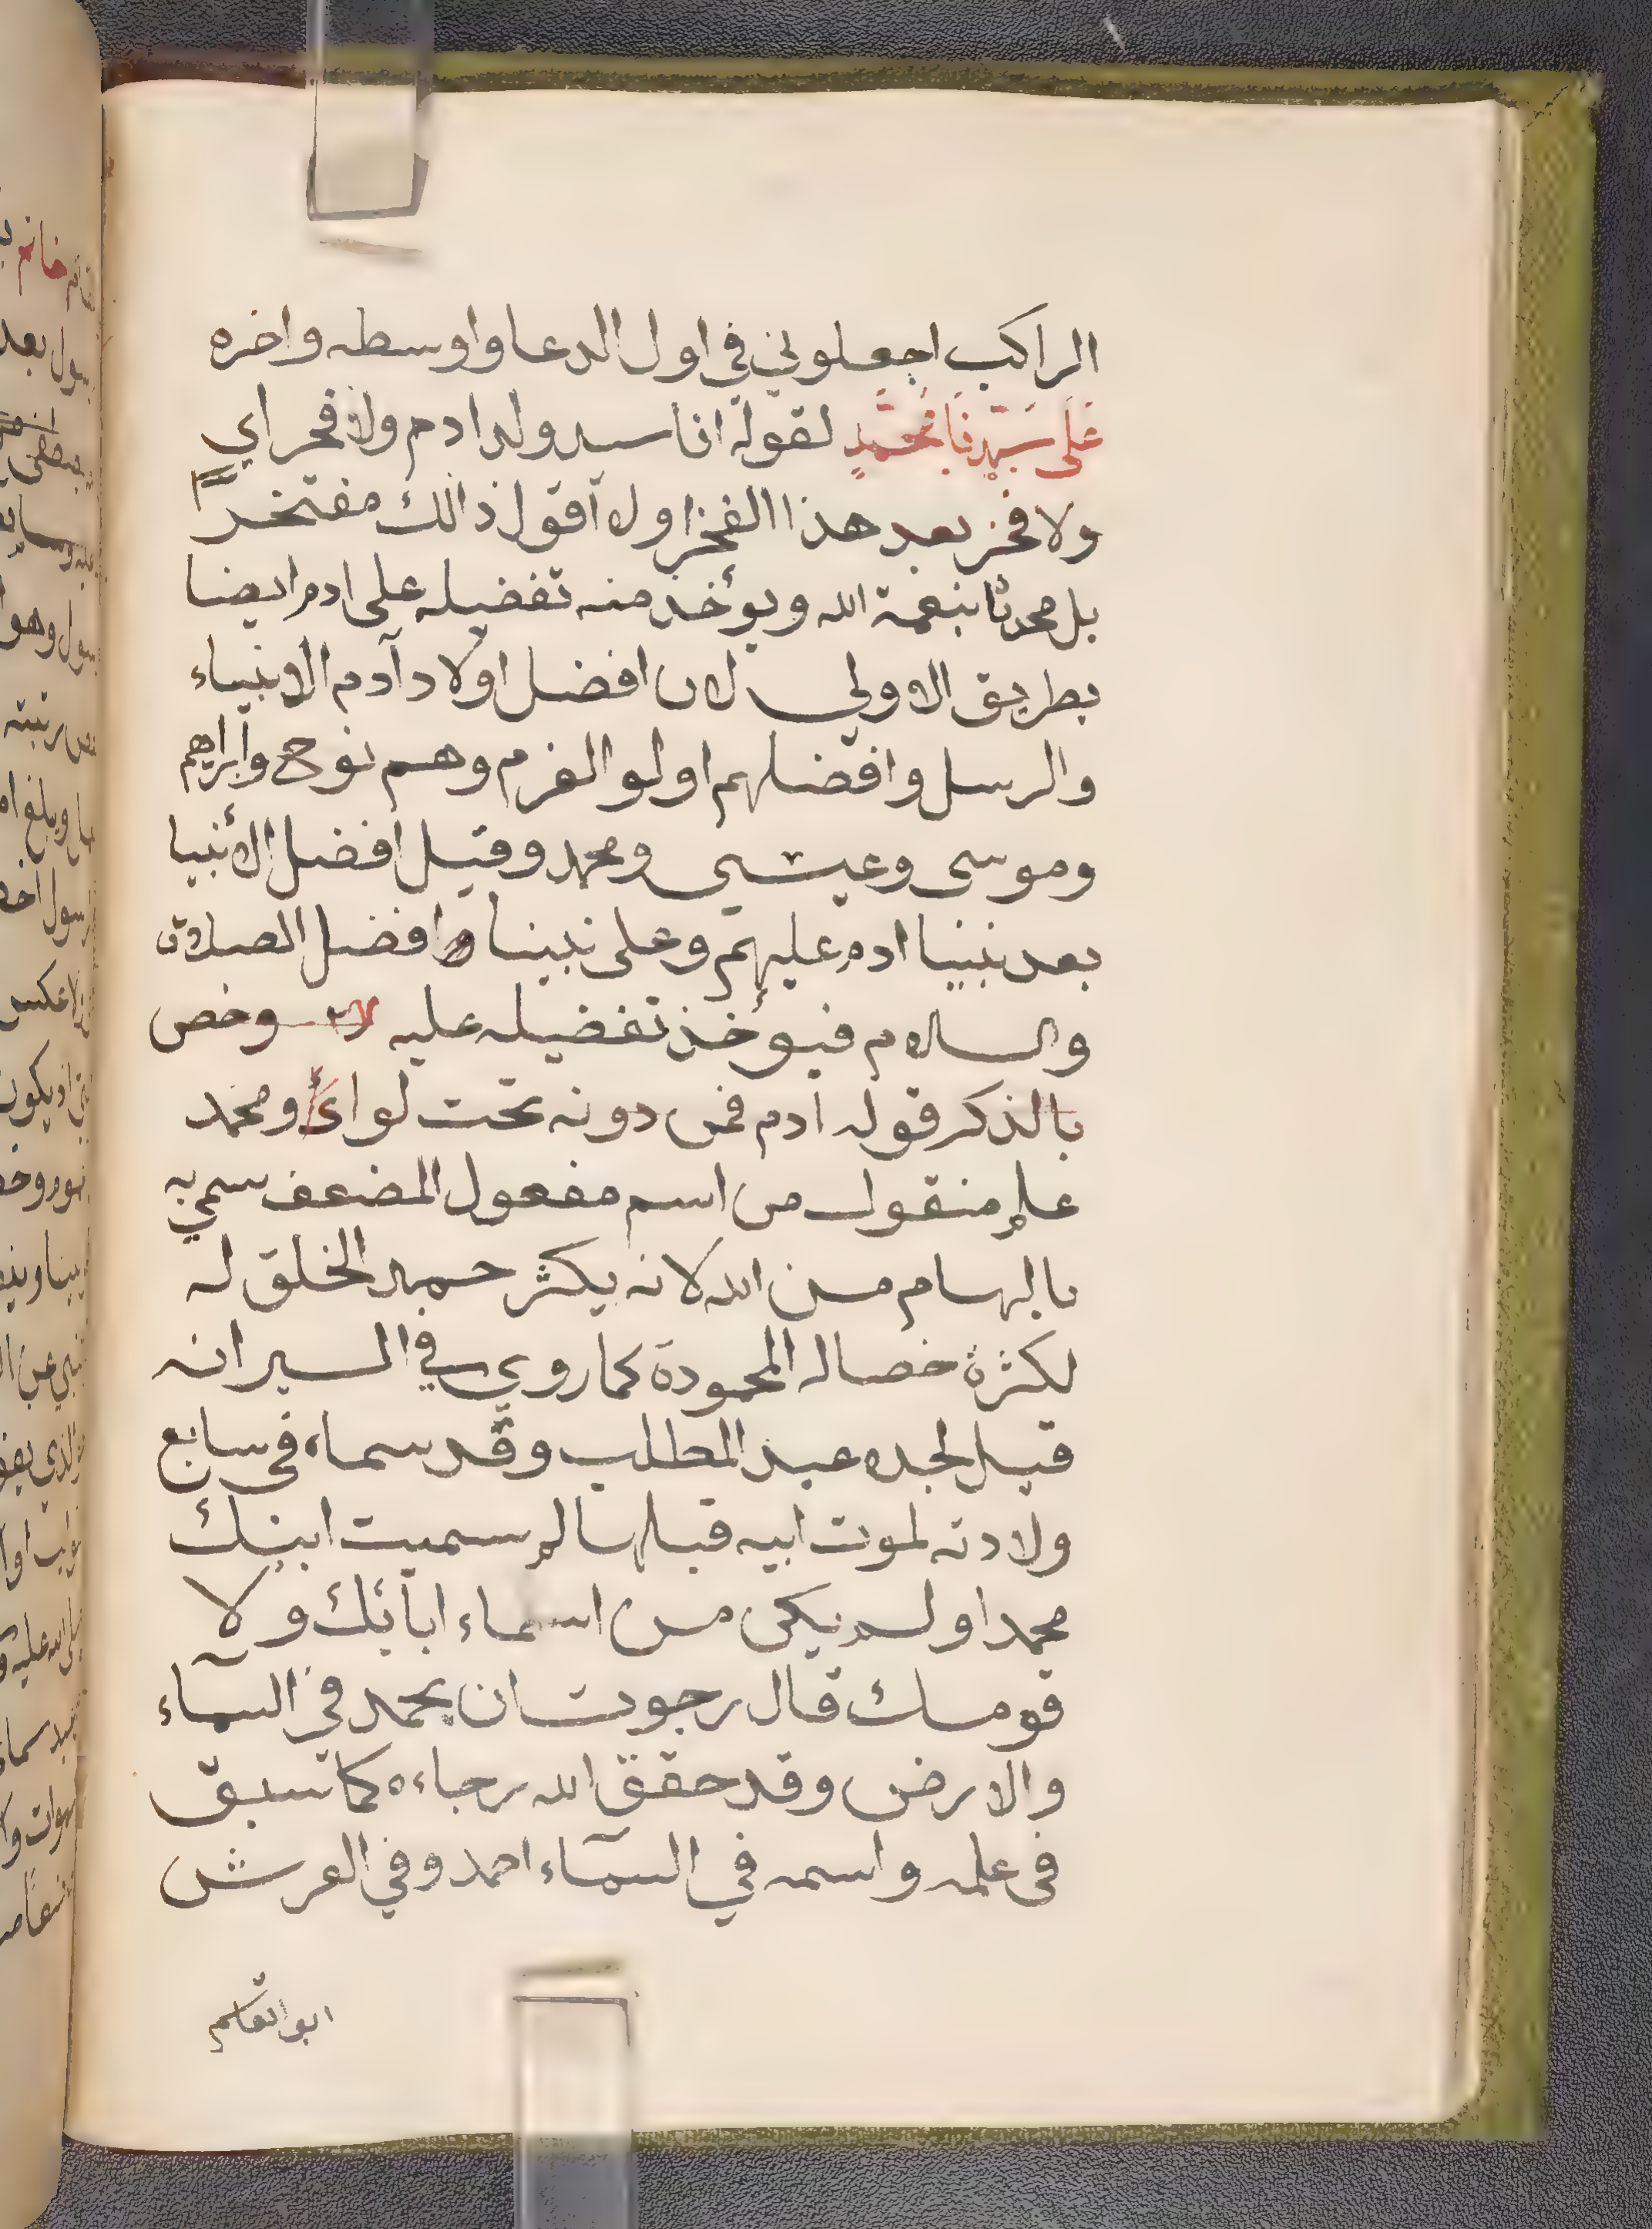 الراكب اجعلوني في اول الدعا واوسطه واخره
عَلَى سَيِّدِنَا مُحَمَّدٍ لقوله انا سيد ولد ادم ولا فخر اي
ولا فخر بعد هذا الفخر او لا آقول ذالك مفتخرًا
بل محدثا بنعمة الله ويؤخذ منه تفضيله على ادم ايضا
بطريق الاولي لان افضل اولاد آدم الانبياء
والرسل وافضلهم اولو العزم وهم نوح وابراهيم
وموسى وعيسي ومحمد وقيل افضل الأنبيا
بعد نبينا ادم عليهم وعلى نبينا افضل الصلاة
والسلام فيؤخذ تفضيله عليه وخص
بالذكر قوله آدم فمن دونه تحت لوائ ومحمد
علم منقول من اسم مفعول المضعف سمي به
بالهام من الله لانه يكثر حمد الخلق له
لكثرة خصاله المحمودة كما روي في السير انه
قيل لجده عبد المطلب وقد سماه في سابع
ولادته لموت ابيه قبلها لم سميت ابنك
محمدا ولم يكن من اسماء ابائك ولا
قومك قال رجوت ان يحمد في السمآء
والارض وقد حقق الله رجاءه كما سبق
في علمه واسمه في السمآء احمد وفي العرش
ابو القاسم